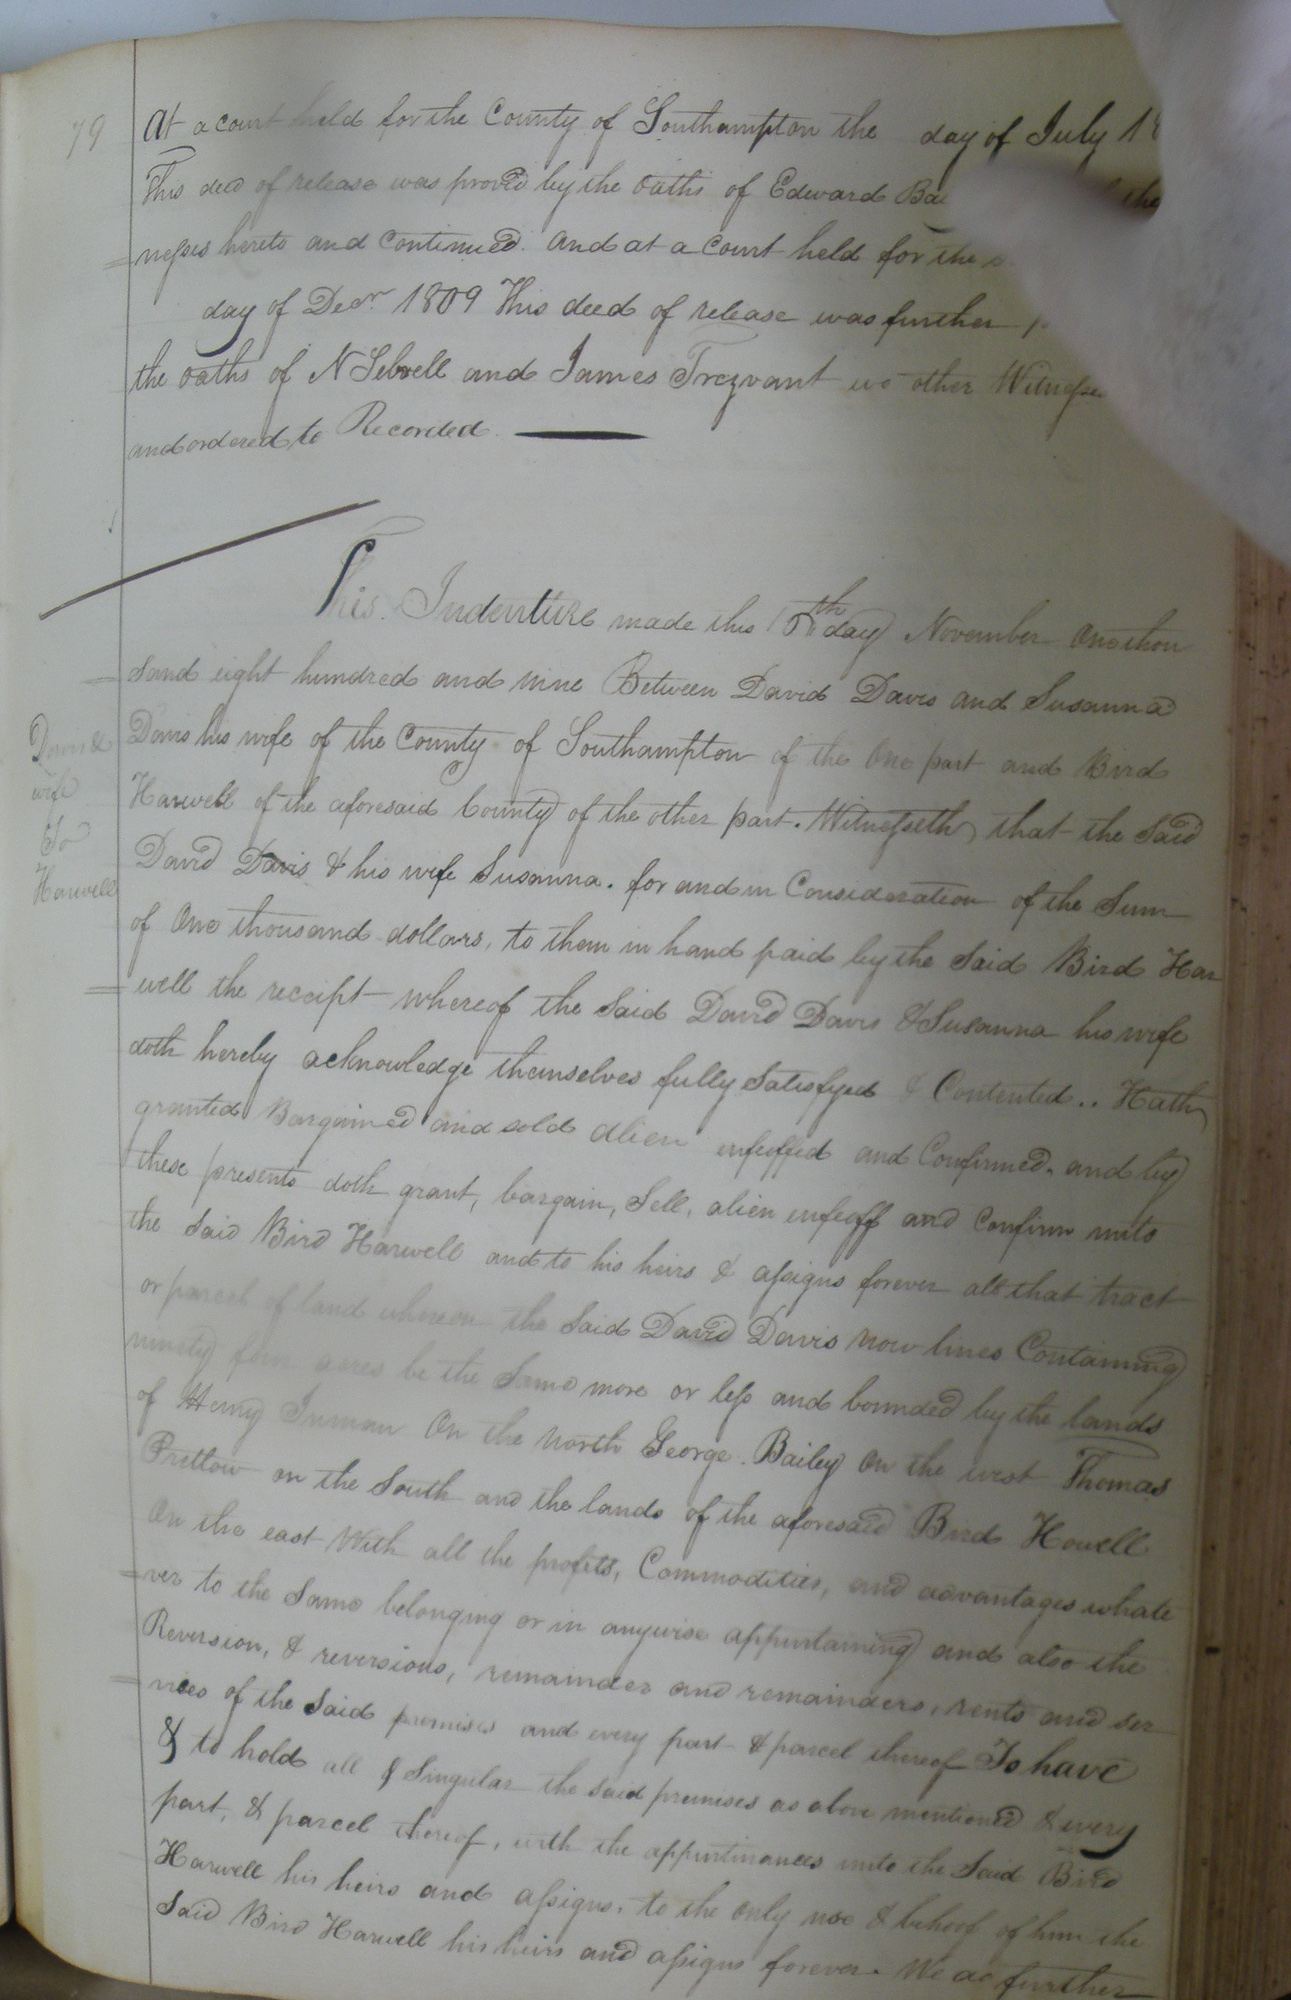 79
At a court held for the County of Southampton the day of July 18
This deed of release was proved by the oaths of Edward the
nesses hereto and Continued. And at a Court held for the
day of Decr. 1809 This deed of release was further
the oaths of N Sebrell and James Trezvant other Witnesse
and ordered to Recorded
This Indenture made this th day November One thou
sand eight hundred and nine Between David Davis and Susanna
Davis his wife of the County of Southampton of the One part and Bird
Harwell of the aforesaid County of the other part. Witnesseth, that the Said
David Davis & his wife Susanna. for and in Consideration of the Sum
of One thousand dollars, to them in hand paid by the Said Bird Har
well the receipt whereof the Said David Davis & Susanna his wife
doth hereby acknowledge themselves fully Satisfyed & Contented.. Hath
granted Bargained and sold alien enfeoffed and Confirmed. and by
these presents doth grant, bargain, Sell, alien enfeoff and Confirm unto
the Said Bird Harwell and to his heirs & assigns forever all that tract
or parcel of land whereon the Said David Davis now lives Containing
ninety four acres be the Same more or less and bounded by the lands
of Henry Inman On the North George. Bailey On the west Thomas
Pretlow on the South and the lands of the aforesaid Bird Howell
On the east With all the profits, Commodities, and advantages whate
ver to the Same belonging or in anywise appurtaining and also the
Reversion, & reversions, remainder and remainders, rents and ser
vices of the Said premises and every part & parcel thereof To have
& to hold all & Singular the said premises as above mentioned & every
part, & parcel thereof, with the appurtinances unto the Said Bird
Harwell his heirs and assigns. to the Only use & behoof of him the
Said Bird Harwell his heirs and assigns forever. We do further
Davis &
wife
To
Harwell